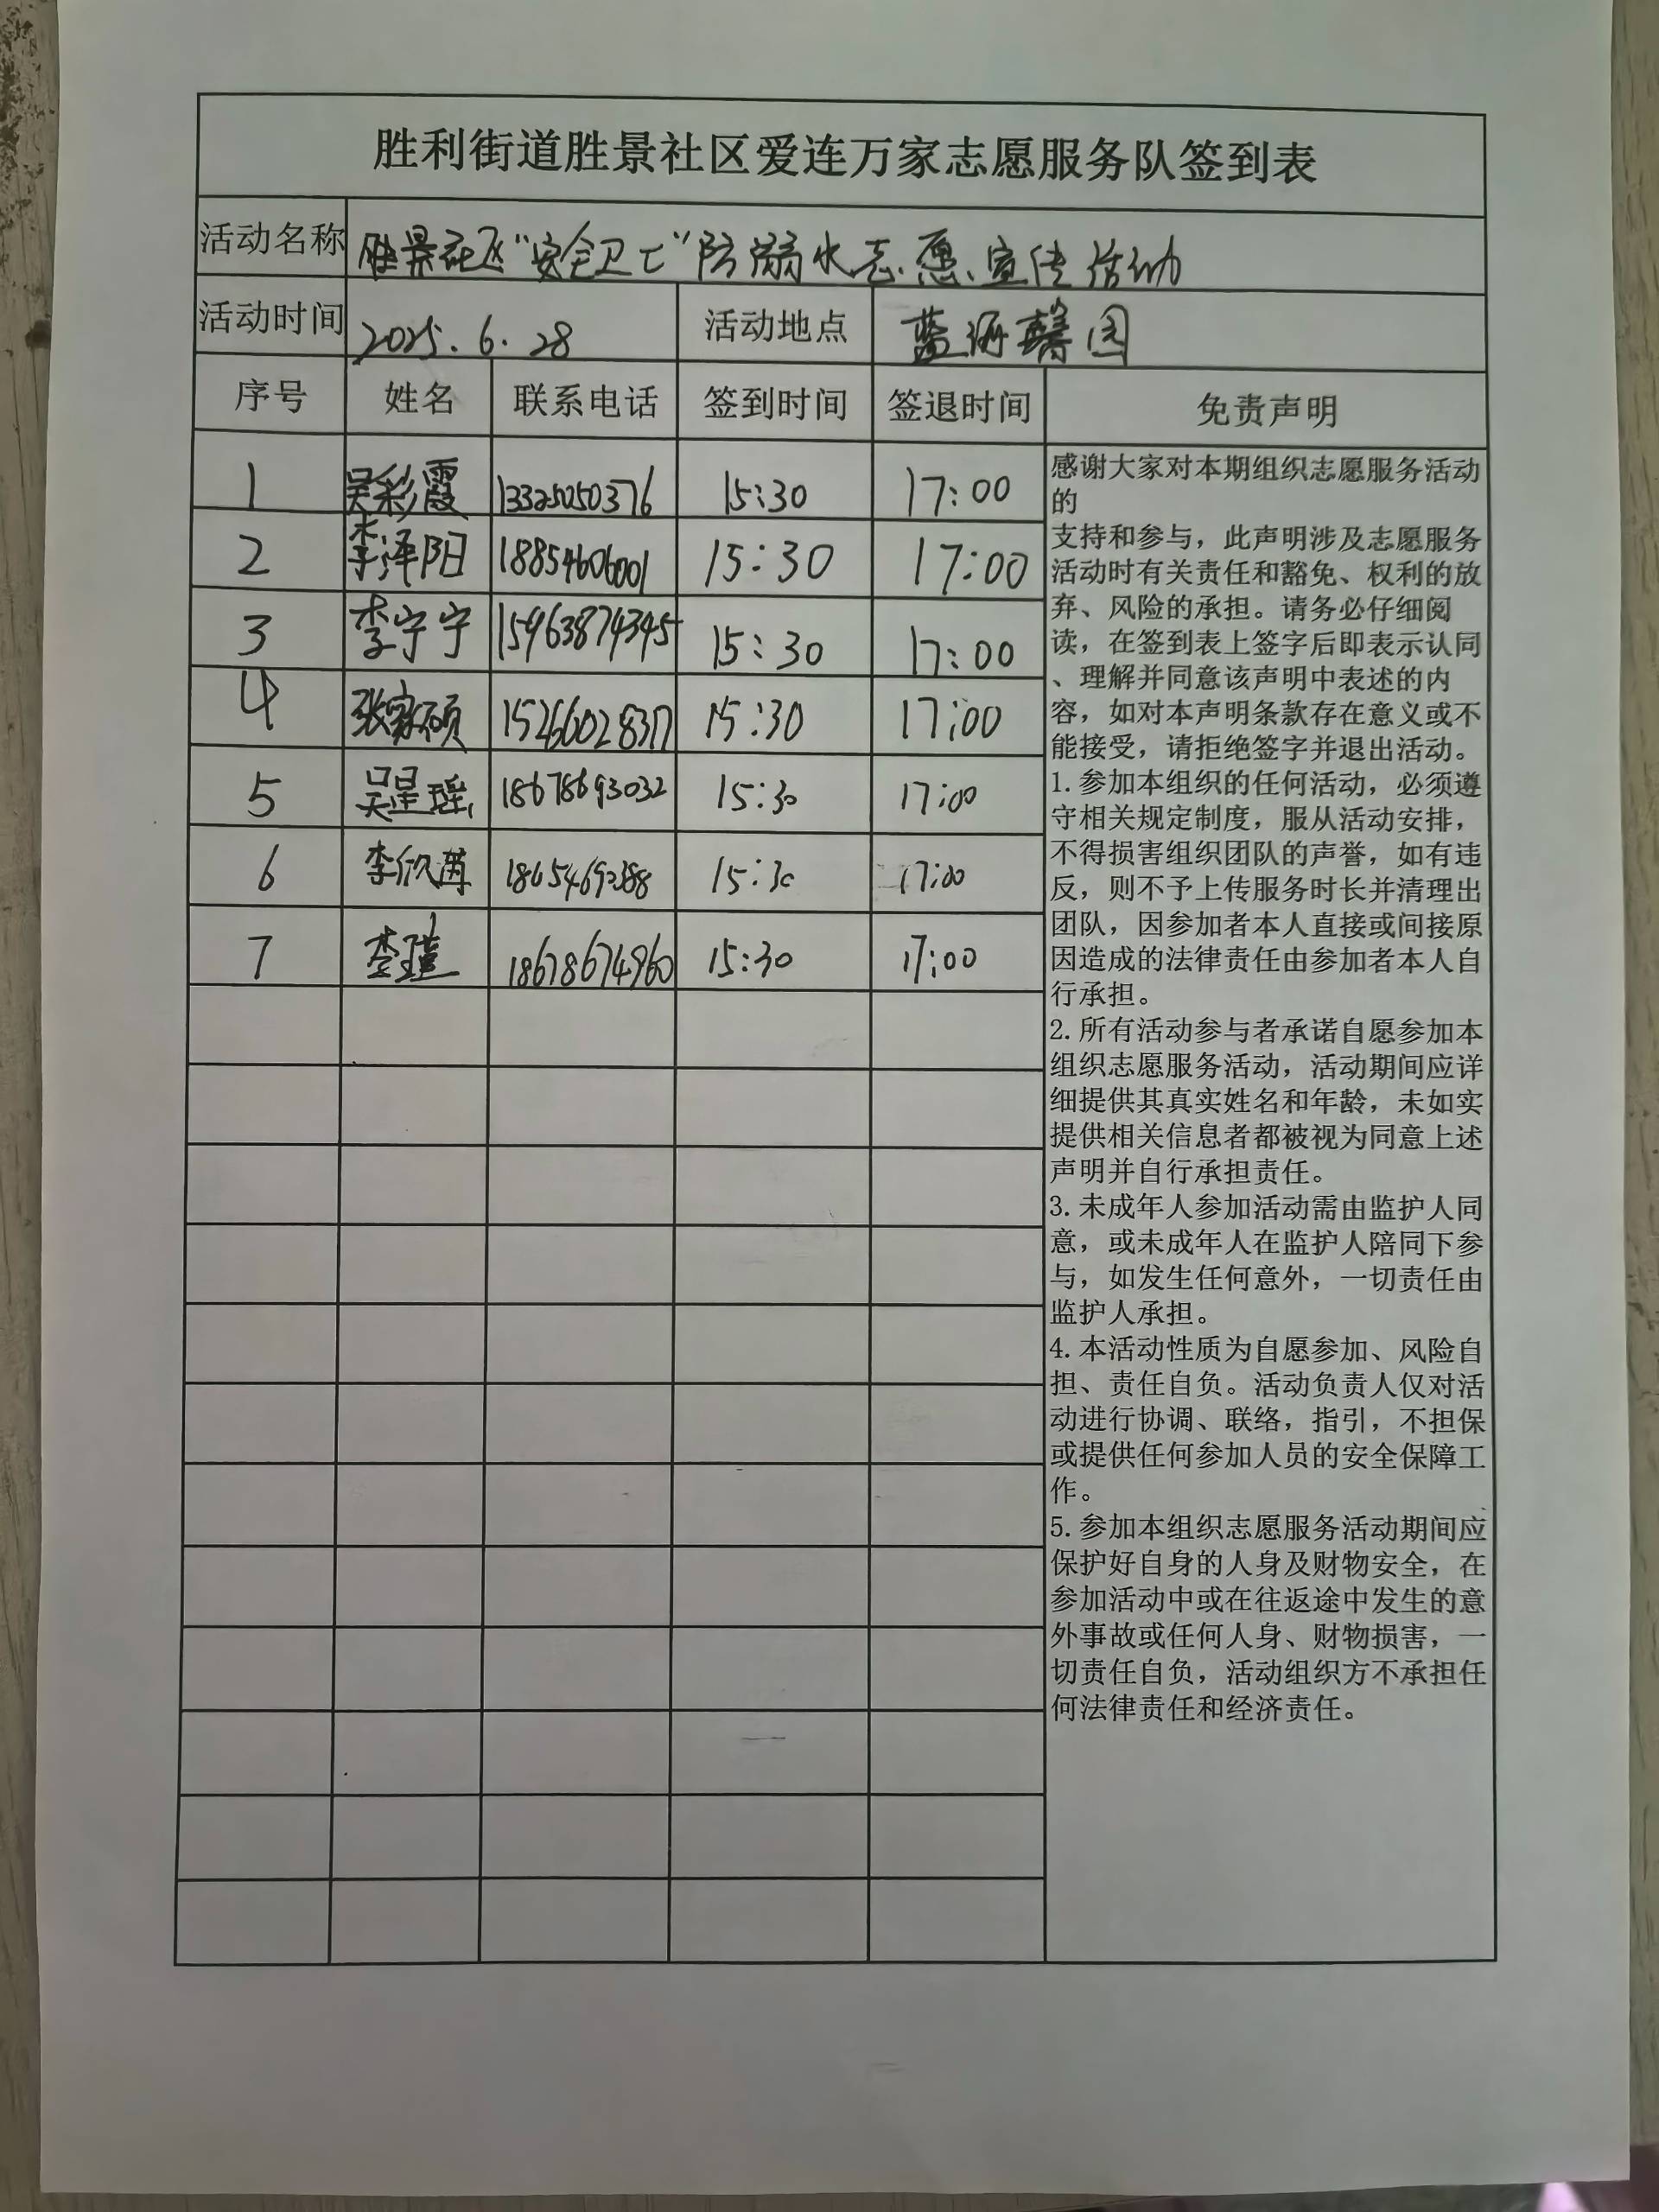 胜利街道胜景社区爱连万家志愿服务队签到表
活动名称 胜景社区“安全卫士”防溺水志愿宣传活动
活动时间 2025.6.28 活动地点 蓝海馨园
序号 姓名 联系电话 签到时间 签退时间 免责声明
1 吴彩霞 13325250376 15:30 17:00
2 李泽阳 18854606001 15:30 17:00
3 李宁宁 15963874345 15:30 17:00
4 张家硕 15266028317 15:30 17:00
5 吴星瑶 18678693032 15:30 17:00
6 李欣 15:30 17:00
7 李瑾 18678674960 15:30 17:00
感谢大家对本期组织志愿服务活动
的
支持和参与，此声明涉及志愿服务
活动时有关责任和豁免、权利的放
弃、风险的承担。请务必仔细阅
读，在签到表上签字后即表示认同
、理解并同意该声明中表述的内
容，如对本声明条款存在意义或不
能接受，请拒绝签字并退出活动。
1.参加本组织的任何活动，必须遵
守相关规定制度，服从活动安排，
不得损害组织团队的声誉，如有违
反，则不予上传服务时长并清理出
团队，因参加者本人直接或间接原
因造成的法律责任由参加者本人自
行承担。
2.所有活动参与者承诺自愿参加本
组织志愿服务活动，活动期间应详
细提供其真实姓名和年龄，未如实
提供相关信息者都被视为同意上述
声明并自行承担责任。
3.未成年人参加活动需由监护人同
意，或未成年人在监护人陪同下参
与，如发生任何意外，一切责任由
监护人承担。
4.本活动性质为自愿参加、风险自
担、责任自负。活动负责人仅对活
动进行协调、联络，指引，不担保
或提供任何参加人员的安全保障工
作。
5.参加本组织志愿服务活动期间应
保护好自身的人身及财物安全，在
参加活动中或在往返途中发生的意
外事故或任何人身、财物损害，一
切责任自负，活动组织方不承担任
何法律责任和经济责任。